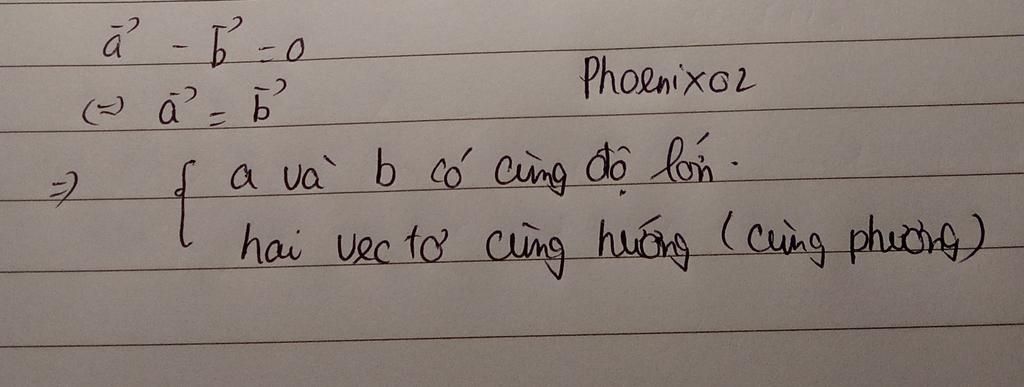 a⃗ - b⃗ = 0
Phoenix02
(=) a⃗ = b⃗
=) { a và b có cùng độ lớn.
hai vec tơ cùng hướng (cùng phương)